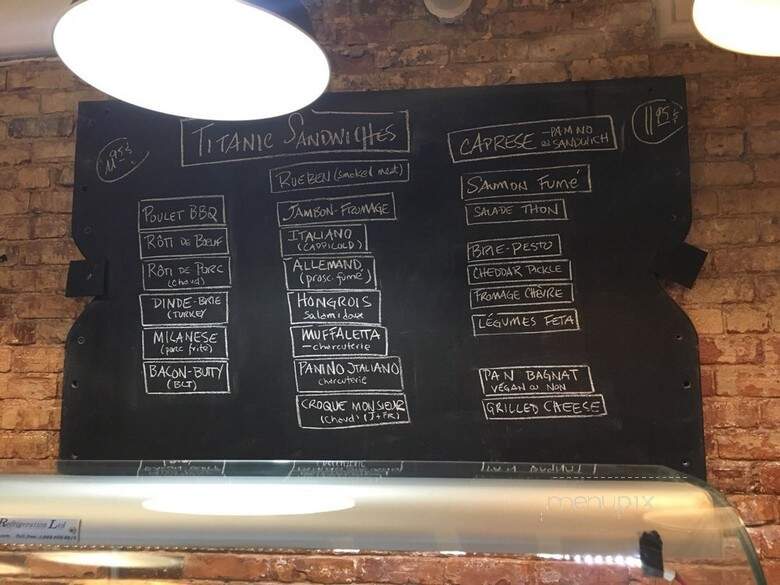 TITANIC SANDWICHES
11 95¢
POULET BBQ
RÔTI DE BOEUF
RÔTI DE PORC
(chaud)
DINDE-BRIE
(TURKEY
MILANESE
(porc frite)
BACON-BUTTY
(BLT)
RUEBEN (smoked meat)
JAMBON-FROMAGE
ITALIANO
(CAPPICOLO)
ALLEMAND
(prosc. fumé)
HONGROIS
Salami doux
MUFFALETTA
-charcuterie
PANINO ITALIANO
charcuterie
CROQUE MONSIEUR
(chaud)
CAPRESE - PANINO
ou SANDWICH
11 95¢
SAUMON FUMÉ
SALADE THON
BRIE-PESTO
CHEDDAR PICKLE
FROMAGE CHÈVRE
LÉGUMES FETA
PAN BAGNAT
VEGAN OU NON
GRILLED CHEESE
Refrigeration Ltd
menupix